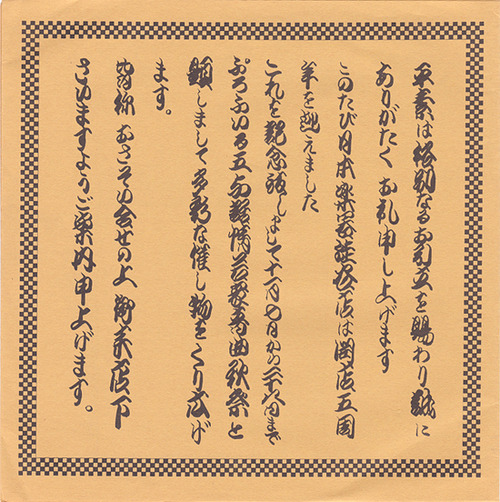 平素は格別なるお引立を賜わり誠に
ありがたく お礼申し上げます
このたび日本楽器 店は開店五周
年を迎えました
これを記念致しまして十一月 日から 日まで
ぷろふいる五 秋祭と
題しまして多彩な催し物をくり広げ
ます。
皆様 おさそい合せの上 御来店下
さいますようご案内申上げます。